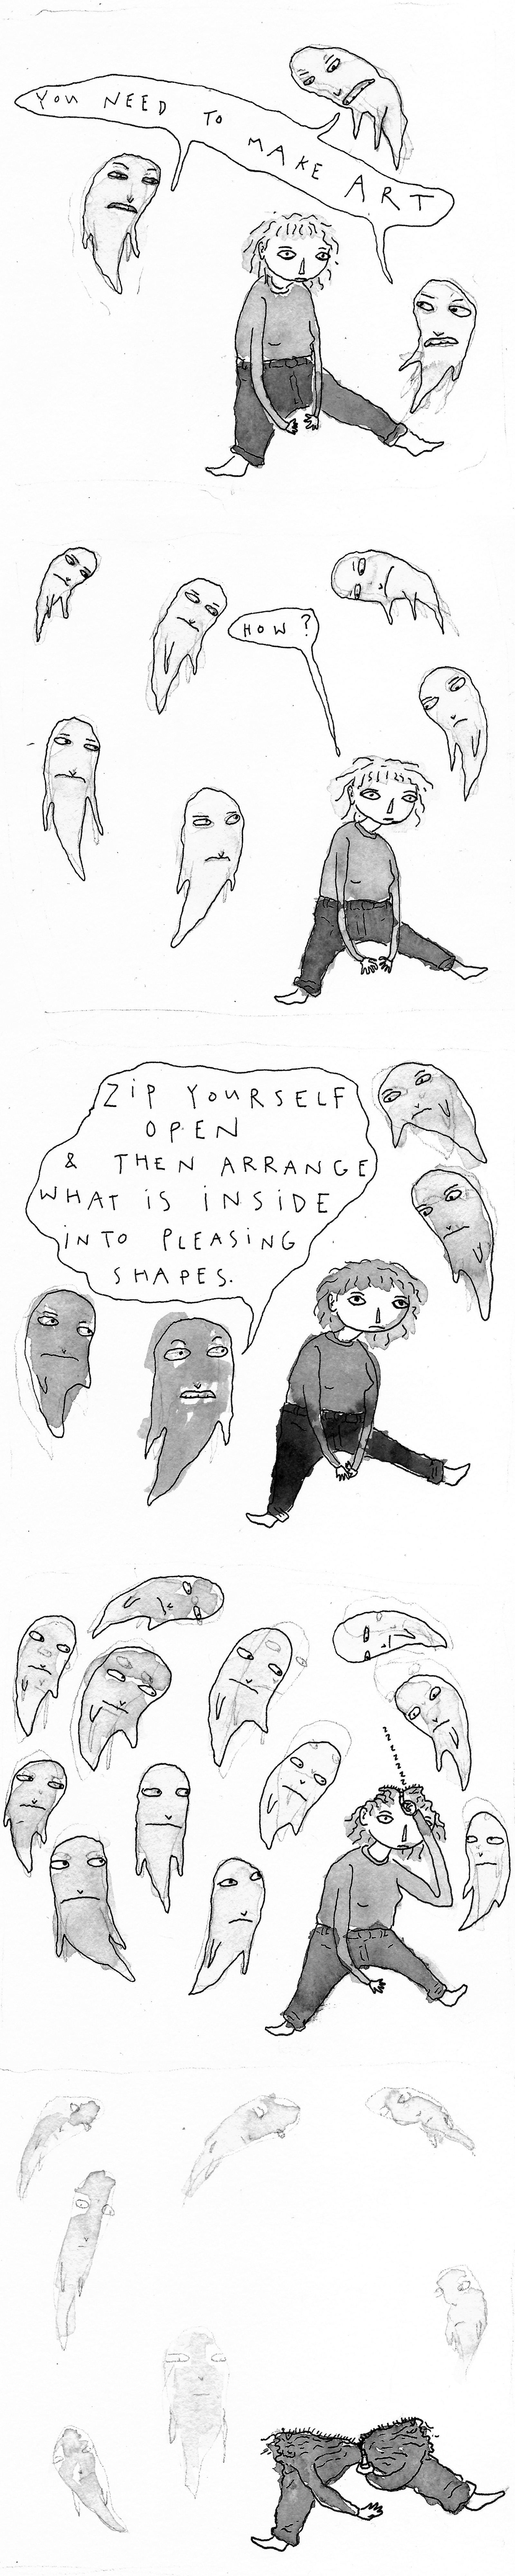 YOU NEED TO MAKE ART
HOW?
ZIP YOURSELF
OPEN
& THEN ARRANGE
WHAT IS INSIDE
INTO PLEASING
SHAPES.
z
z
z
z
z
z
z